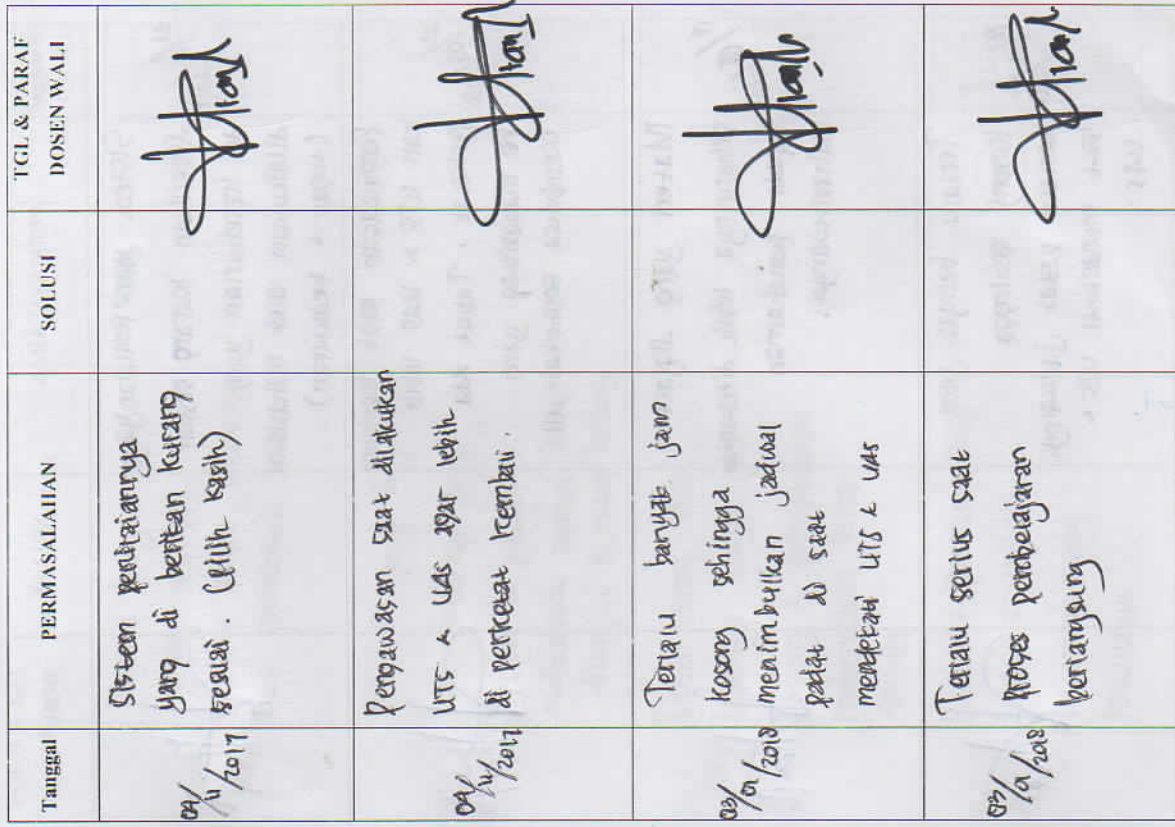 Tanggal
PERMASALAHAN
SOLUSI
TGL & PARAF
DOSEN WALI
09/11/2017
Sistem penilaiannya
yang di berikan kurang
sesuai. (pilih kasih)
09/11/2017
Pengawasan saat dilakukan
UTS & UAS agar lebih
di perketat kembali.
03/01/2018
Terlalu banyak jam
kosong sehingga
menimbulkan jadwal
padat di saat
mendekati UTS & UAS
03/01/2018
Terlalu serius saat
proses pembelajaran
berlangsung